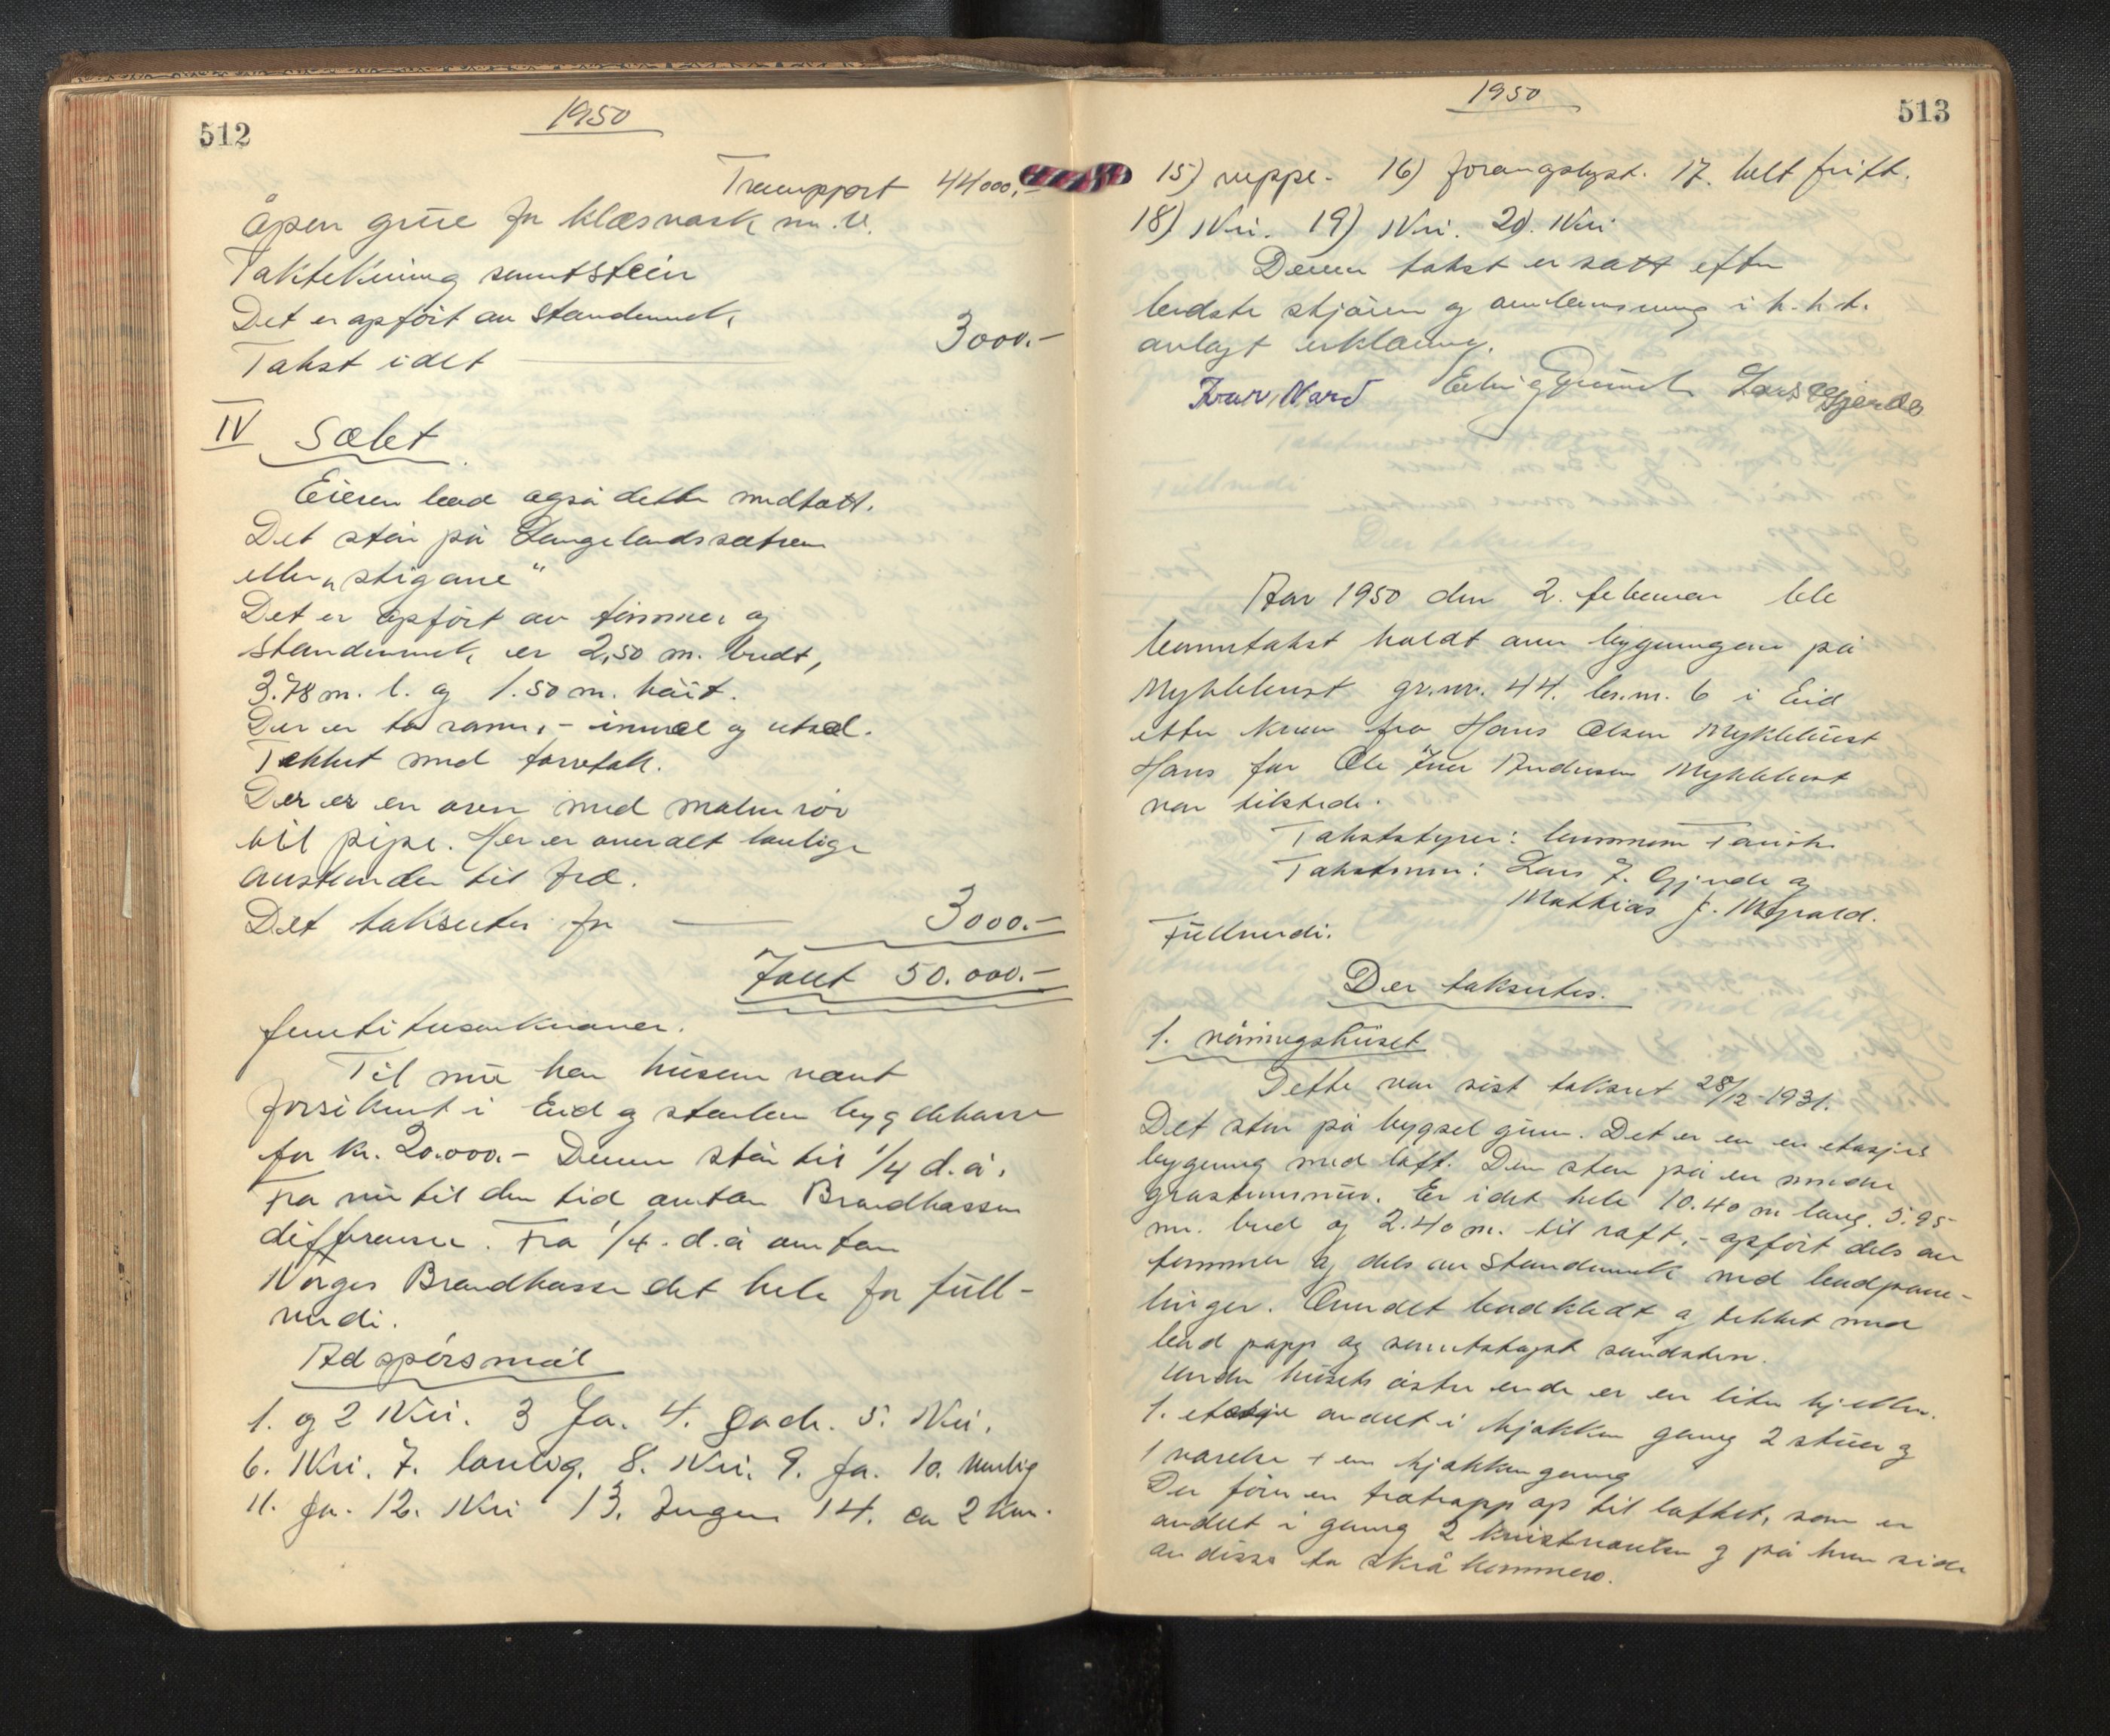 512
1950
Transport 44000.-
åpen grue for klæsvask m.v.
Taktekning sementstein
Det er opført av standerverk,
Takst i det 3000.-
IV Sælet
Eieren bad også dette medtatt.
Det står på Langelandssætren
eller „stigane"
Det er opført av tømmer og
standerverk, er 2,50 m. bredt,
3.78 m. l. og 1.50 m. høit.
Der er to rom, - innsel og utsel.
Tekket med torvtak.
Der er en oven med malmrør
til pipe. Her er overalt lovlige
avstander til træ.
Det takseres for 3000.-
Ialt 50.000.-
femtitusenkroner.
Til nu har husene vært
forsikret i Eid og Starheim bygdekasse
for kr. 20.000.- Denne står til 1/4 d.å.
Fra nu til den tid overtar Brandkassen
differansen. Fra 1/4. d.å overtar
Norges Brandkasse det hele for full-
verdi.
Ad spørsmål
1. og 2 Nei. 3 Ja. 4. Gode. 5. Nei.
6. Nei. 7. lovlig. 8. Nei. 9. Ja. 10. Lovlig
11. Ja. 12. Nei 13. Ingen 14. ca 2 km.
1950
513
15) neppe. 16) forangslyst. 17. helt fritt.
18) Nei. 19) Nei. 20. Nei
Denne takst er satt efter
bedste skjønn og overbevisning i h.h.t.
avlagt erklæring.
Ivar Nard Lars Gjerde
Aar 1950 den 2. februar ble
branntakst holdt over bygningene på
Myklebust gr.nr. 44. br.nr. 6 i Eid
etter krav fra Hans Olsen Myklebust
Hans far Ole Andersen Myklebust
var tilstede.
Takststyrer: lensmann
Takstmenn: Lars J. Gjerde og
Mathias J. Myrold.
Fullverdi.
Der takseres.
1. våningshuset
Dette var sist taksert 28/12-1931.
Det står på bygsel grunn. Det er en en etasjes
bygning med loft. Den står på en
gråsteinsmur. Er i det hele 10.40 m lang. 5.95
m. bred og 2.40 m. til raft, - opført dels av
tømmer og dels av standerverk med bordpane-
linger. Omdet bordkledt og tekket med
bord papp og sementstøpt sandsten.
Under husets østre ende er en liten kjeller.
1. etasje avdelt i kjøkken gang 2 stuer og
1 værelse + en kjøkkengang
Der fører en tretrapp op til loftet, som er
avdelt i gang 2 kvistværelser og på hver side
av disse to skråkammers.